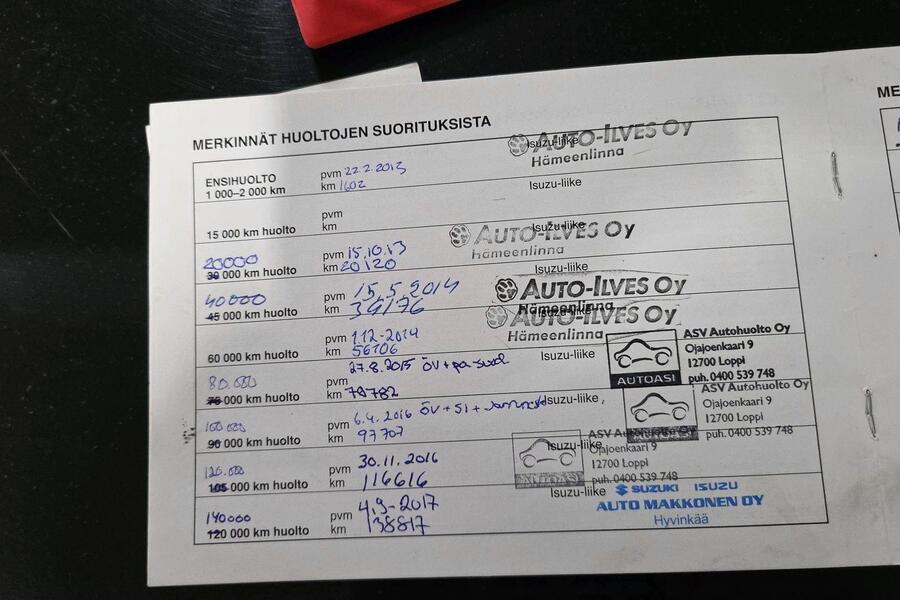 ME
MERKINNÄT HUOLTOJEN SUORITUKSISTA
ENSIHUOLTO
1 000–2 000 km
pvm 22.2.2013
km 1602
Isuzu-liike
AUTO-ILVES Oy
Hämeenlinna
15 000 km huolto
pvm
km
Isuzu-liike
20000
30 000 km huolto
pvm 15.10.13
km 20120
Isuzu-liike
AUTO-ILVES Oy
Hämeenlinna
40000
45 000 km huolto
pvm 15.5.2014
km 39176
Isuzu-liike
AUTO-ILVES Oy
Hämeenlinna
60 000 km huolto
pvm 1.12-2014
km 56106
Isuzu-liike
AUTO-ILVES Oy
Hämeenlinna
80.000
75 000 km huolto
27.8.2015 ÖV +
pvm
km 79782
Isuzu-liike
AUTOASI
ASV Autohuolto Oy
Ojajoenkaari 9
12700 Loppi
puh. 0400 539 748
100.000
90 000 km huolto
pvm 6.4.2016 ÖV + SI +
km 97707
Isuzu-liike
ASV Autohuolto Oy
Ojajoenkaari 9
12700 Loppi
puh. 0400 539 748
120.000
105 000 km huolto
pvm 30.11.2016
km 116616
Isuzu-liike
AUTOASI
ASV Autohuolto Oy
Ojajoenkaari 9
12700 Loppi
puh. 0400 539 748
140000
120 000 km huolto
pvm 4.9-2017
km 138817
Isuzu-liike
SUZUKI ISUZU
AUTO MAKKONEN OY
Hyvinkää